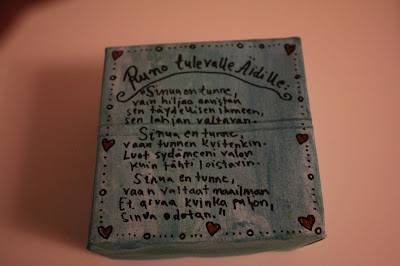 Runo tulevalle Äidille:
"Sinua en tunne,
vain hiljaa aavistan
sen täydellisen ihmeen,
sen lahjan valtavan.
Sinua en tunne,
vaan tunnen kuitenkin.
Luot sydämeeni valon
kuin tähti loistavin.
Sinua en tunne,
vaan valtaat maailman
Et arvaa kuinka paljon,
Sinua odotan."